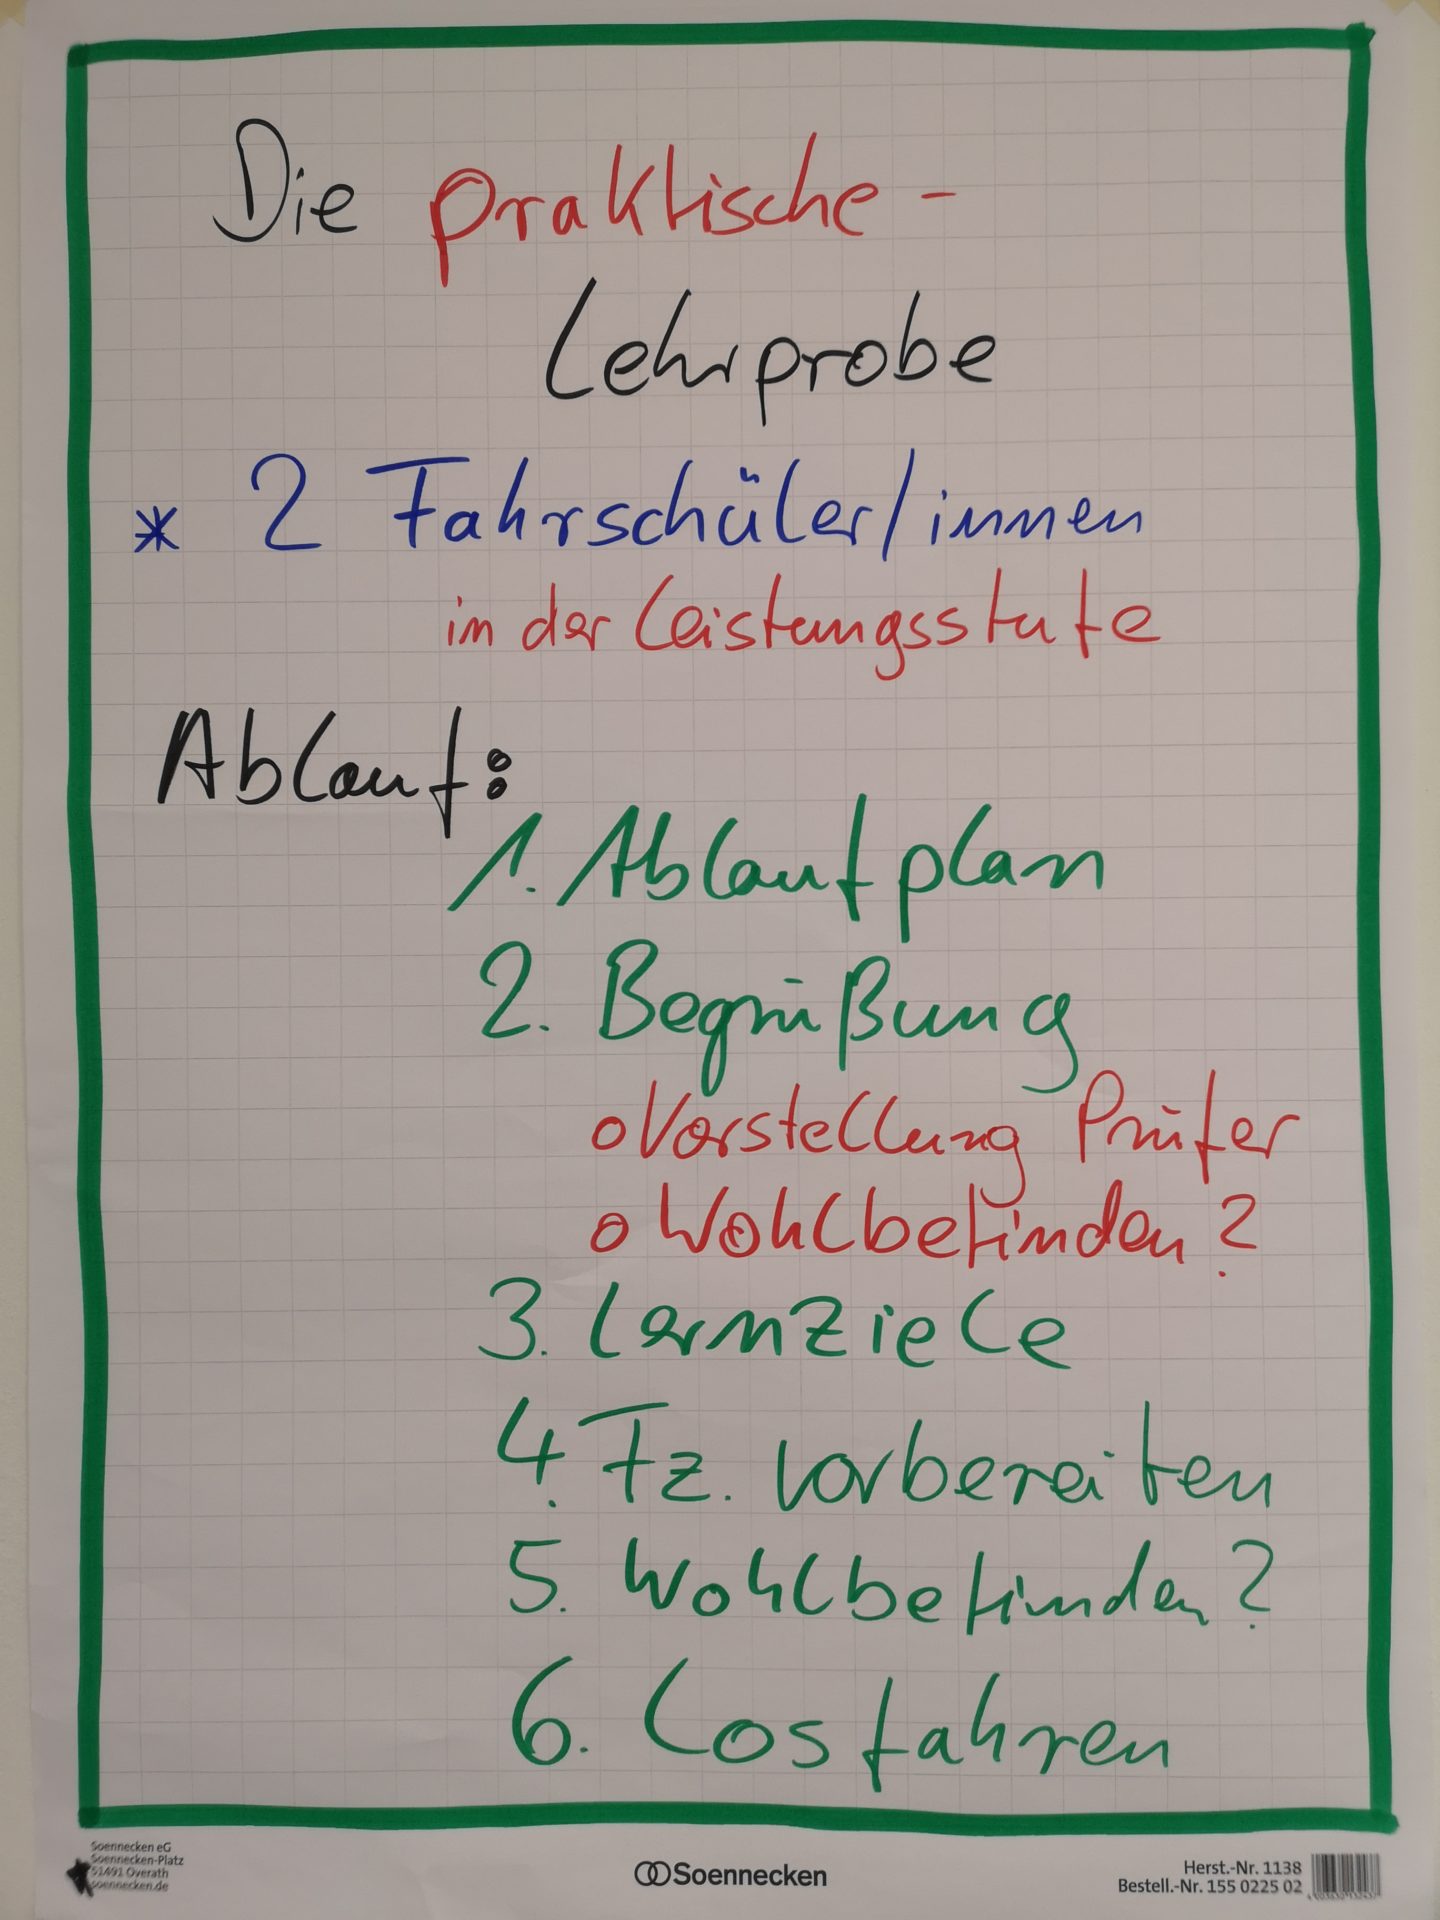 Die praktische -
Lehrprobe
* 2 Fahrschüler/innen
in der Leistungsstufe
Ablauf:
1. Ablaufplan
2. Begrüßung
o Vorstellung Prüfer
o Wohlbefinden?
3. Lernziele
4. Fz. vorbereiten
5. Wohlbefinden?
6. Losfahren
Soennecken eG
Soennecken-Platz
51491 Overath
soennecken.de
Soennecken
Herst.-Nr. 1138
Bestell.-Nr. 155 0225 02